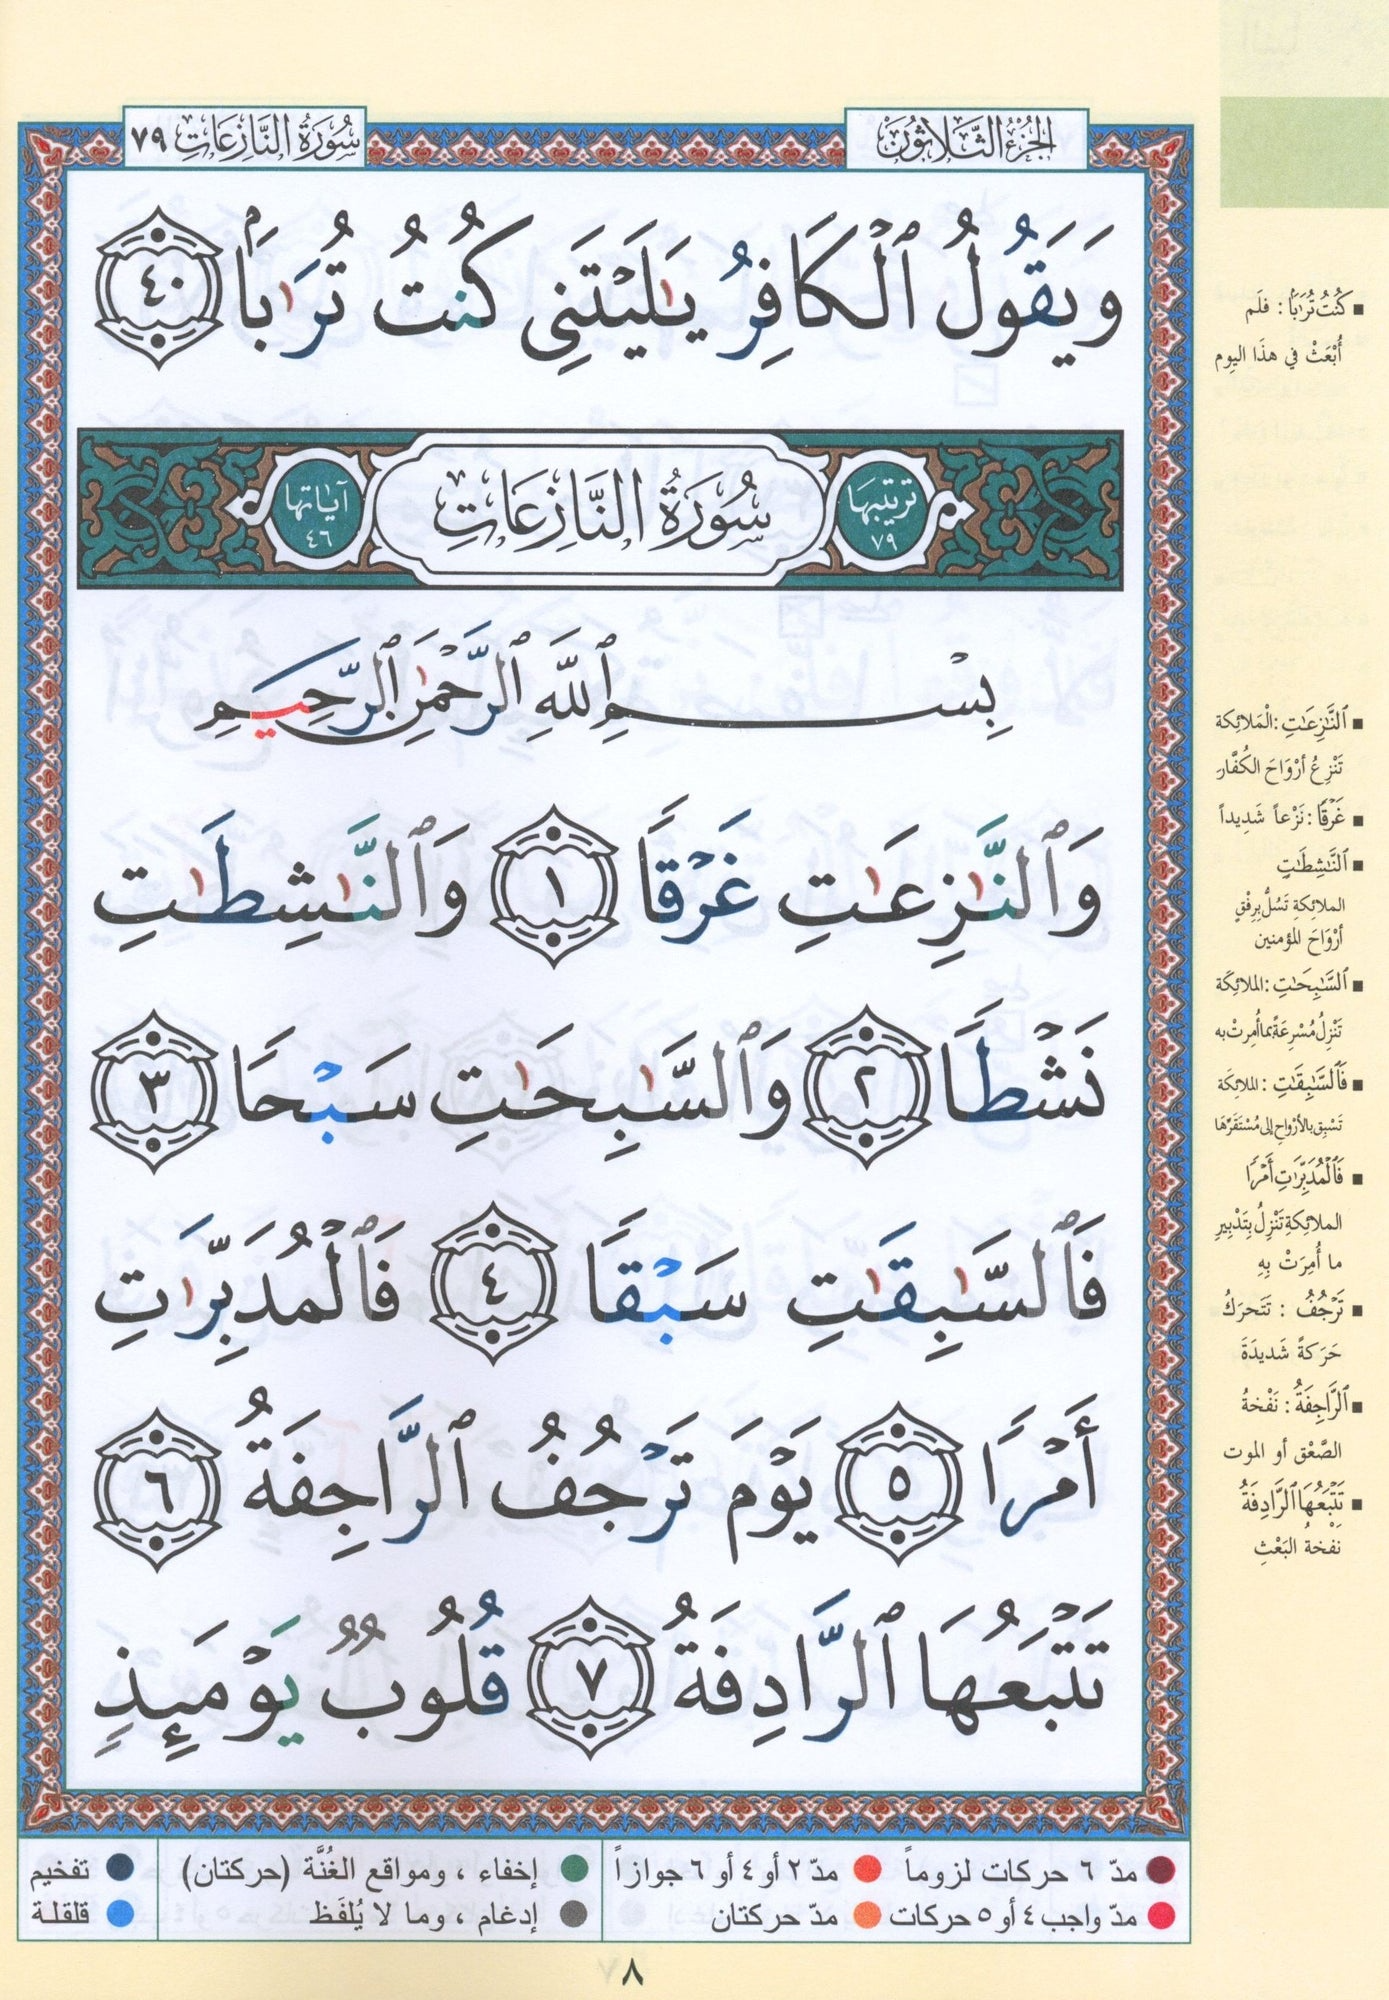 الجزء الثلاثون
سورة النازعات ٧٩
وَيَقُولُ ٱلْكَافِرُ يَٰلَيْتَنِى كُنتُ تُرَٰبَۢا ٤٠
ترتيبها ٧٩
سُورَةُ النَّازِعَاتِ
آياتها ٤٦
بِسْمِ ٱللَّهِ ٱلرَّحْمَٰنِ ٱلرَّحِيمِ
وَٱلنَّٰزِعَٰتِ غَرْقًا ١ وَٱلنَّٰشِطَٰتِ
نَشْطًا ٢ وَٱلسَّٰبِحَٰتِ سَبْحًا ٣
فَٱلسَّٰبِقَٰتِ سَبْقًا ٤ فَٱلْمُدَبِّرَٰتِ
أَمْرًا ٥ يَوْمَ تَرْجُفُ ٱلرَّاجِفَةُ ٦
تَتْبَعُهَا ٱلرَّادِفَةُ ٧ قُلُوبٌ يَوْمَئِذٍ
■ كُنتُ تُرَٰبًا : فلَم
أُبْعَثْ في هذَا اليوم
■ ٱلنَّٰزِعَٰتِ : الْمَلائِكة
تَنْزِعُ أرْوَاحَ الكُفَّار
■ غَرْقًا : نَزْعاً شَدِيداً
■ ٱلنَّٰشِطَٰتِ
الملائكةِ تَسُلُّ بِرِفْقٍ
أرْوَاحَ المؤمنين
■ ٱلسَّٰبِحَٰتِ : الملائِكَة
تَنْزِلُ مُسْرِعَةً بما أُمِرتْ به
■ فَٱلسَّٰبِقَٰتِ : الملائِكَة
تَسْبِق بالأرْوَاحِ إلى مُسْتَقَرِّهَا
■ فَٱلْمُدَبِّرَٰتِ أَمْرًا
الملائِكةِ تَنْزِلُ بِتَدْبِيرِ
ما أُمِرَتْ بِهِ
■ تَرْجُفُ : تَتَحرَكُ
حَرَكةً شَديدَةَ
■ ٱلرَّاجِفَةُ : نَفْخةُ
الصَّعْقِ أو الموت
■ تَتْبَعُهَا ٱلرَّادِفَةُ
نفْخةُ البَعْثِ
مدّ ٦ حركات لزوماً ● مدّ ٢ أو ٤ أو ٦ جوازاً
مدّ واجب ٤ أو ٥ حركات ● مدّ حركتان
إخفاء ، ومواقع الغُنَّة (حركتان)
إدغام ، وما لا يُلفَظ
تفخيم
قلقلة
٨